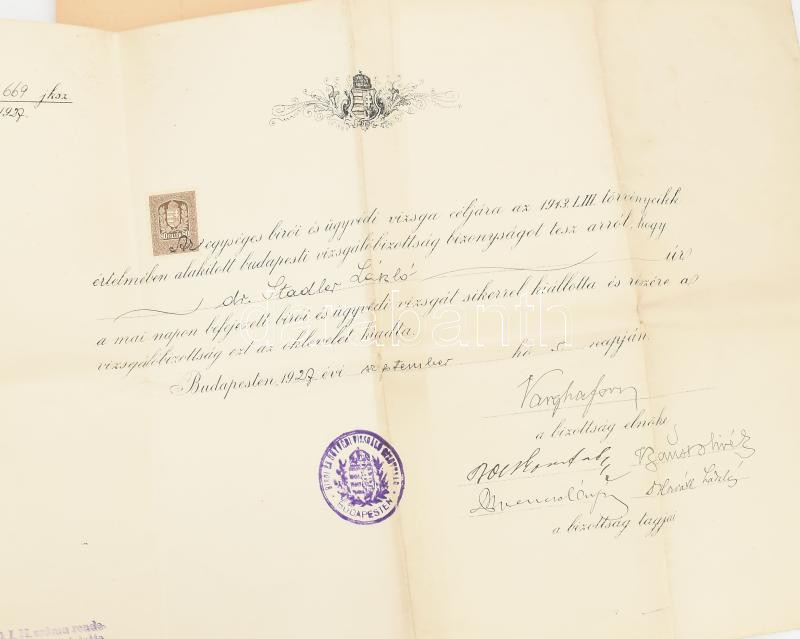 669 jksz
1927.
Az egységes birói és ügyvédi vizsga céljára az 1913. LIII. törvénycikk
értelmében alakitott budapesti vizsgálóbizottság bizonyságot tesz arról, hogy
dr. Stadler László úr
a mai napon befejezett birói és ügyvédi vizsgát sikerrel kiállotta és részére a
vizsgálóbizottság ezt az oklevelet kiadta.
Budapesten, 1927 évi szeptember hó 5 napján.
a bizottság elnöke
László
a bizottság tagjai
BUDAPESTEN
darabanth